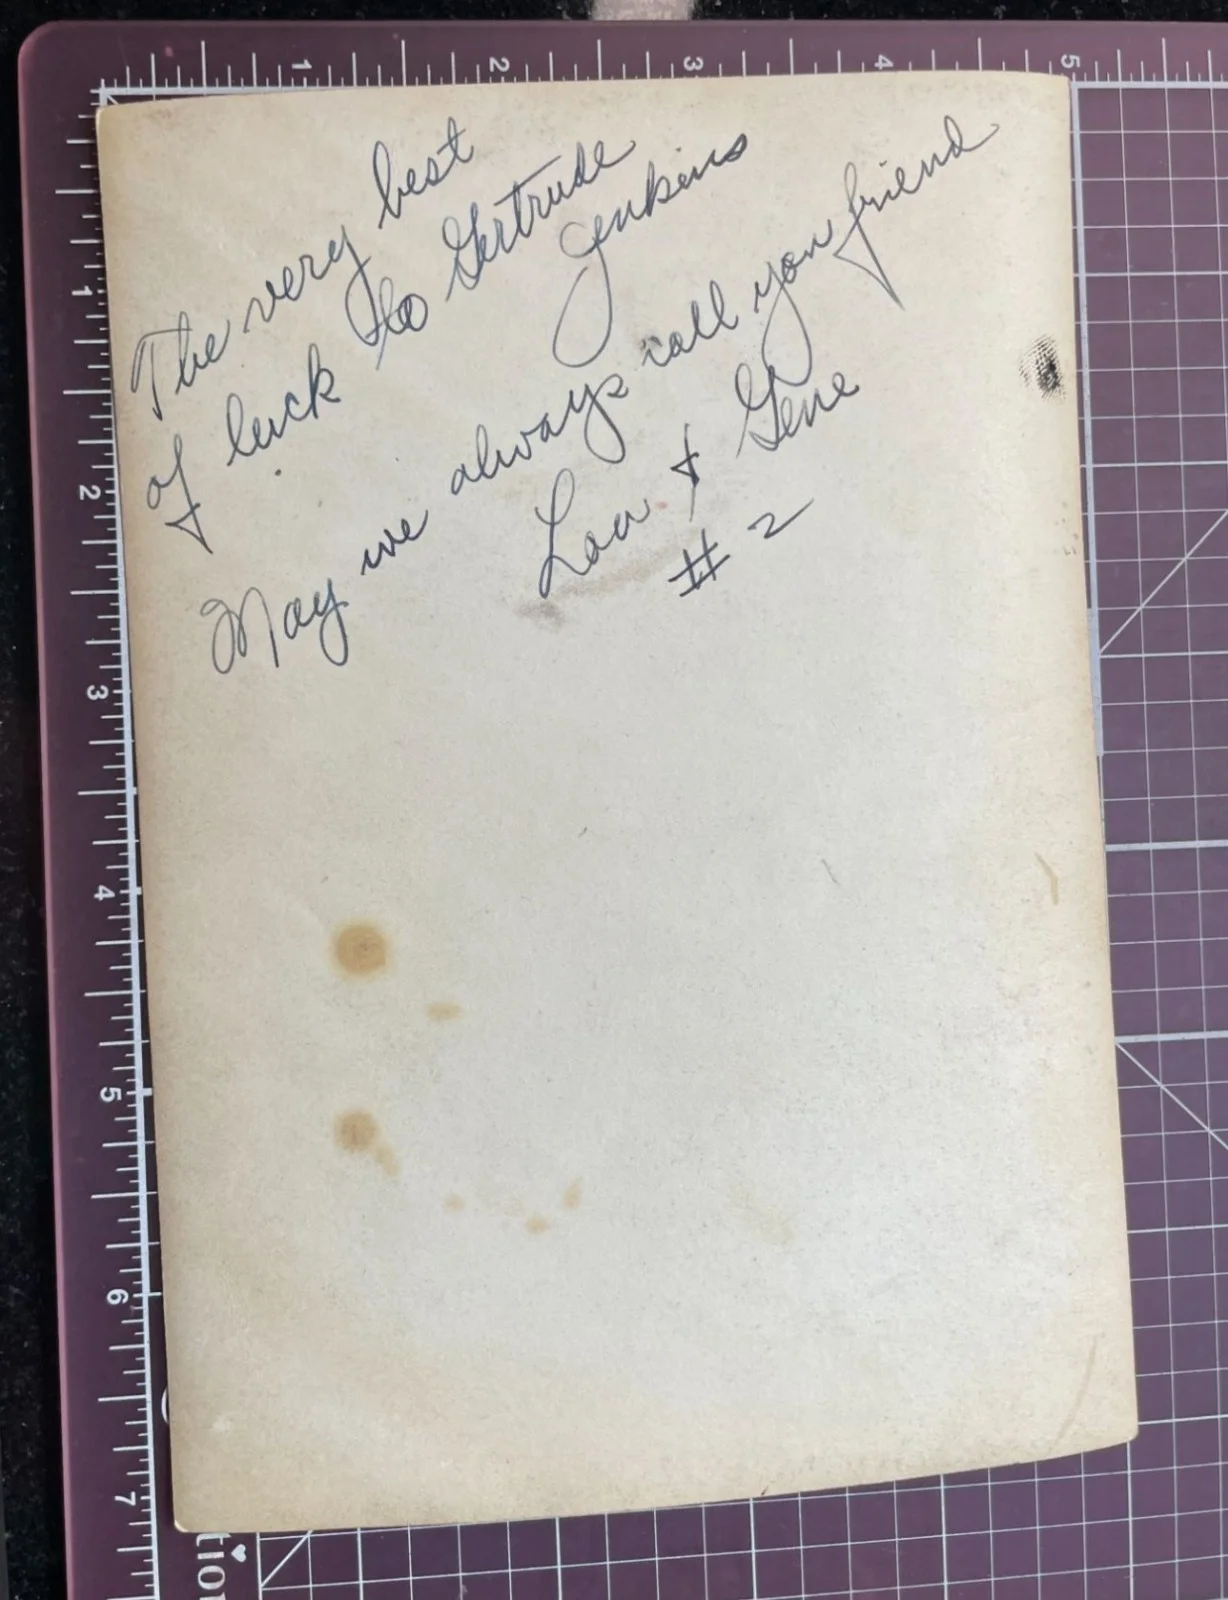 The very best
of luck to Gertrude
Jenkins
May we always call you friend
Lou + Gene
# 2
1 2 3 4 5
1
2
3
4
5
6
7